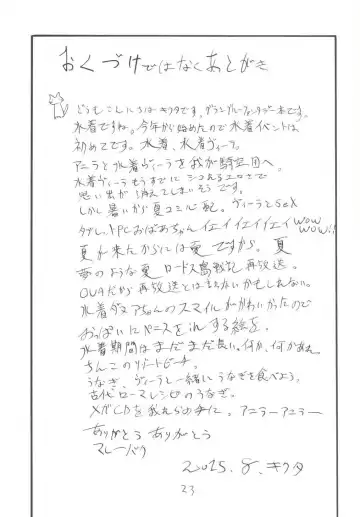 おくづけではなくあとがき
どうもこんにちはキクタです。グランブルーファンタジー本です。
水着ですね。今年から始めたので水着イベントは
初めてです。水着、水着ヴィーラ。
アニラと水着ヴィーラを我が騎空団へ。
水着ヴィーラもうすでにシコれるエロさで
思い出が消えてしまいそうです。
しかし暑いから夏コミ 記。ヴィーラとSex
タブレットPCおばあちゃんイエイイエイイエイWOW
WOW!!
夏が来たからには夏ですから。夏
夢のような夏 ロードス島戦記 再放送。
OVAだから再放送とは言わないかもしれない。
水着ダヌアちゃんのスマイルがかわいかったので
おっぱいにペースを する絵を。
水着期間はまだまだ長い。何か、何かあれ
ちんこのリゾートビーチ。
うなぎ、ヴィーラと一緒にうなぎを食べよう。
古代ローマレシピのうなぎ。
メガCDを我れらの手に。アニラーアニラー
ありがとう ありがとう
マレーバク
2015.8.キクタ
23